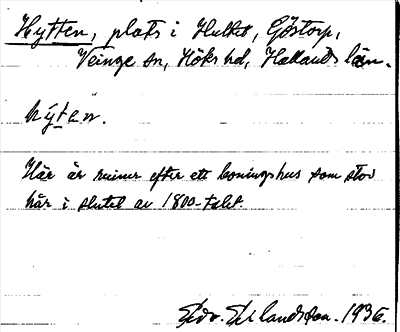 Hytten, plats i Hulket, Göstorp,
Veinge sn, Höks hd, Hallands län.
hýtan.
Här är ruiner efter ett boningshus som stod
här i slutet av 1800-talet.
Edv. Erlandsson. 1936.